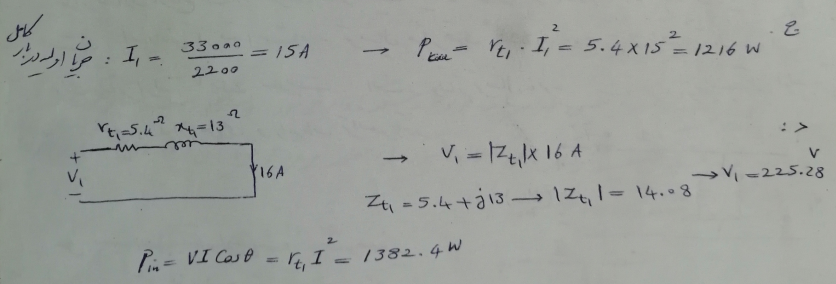 ج. جریان اولیه در بار کامل : I₁ = 33000/2200 = 15A → P = r_t₁ · I₁² = 5.4 × 15² = 1216 W
د :
r_t₁=5.4Ω x_t₁=13Ω
+ V₁ − 16A → V₁ = |Z_t₁| × 16 A
Z_t₁ = 5.4 + j13 → |Z_t₁| = 14.08 → V₁ = 225.28 V
P_in = VI Cosθ = r_t₁ I² = 1382.4 W